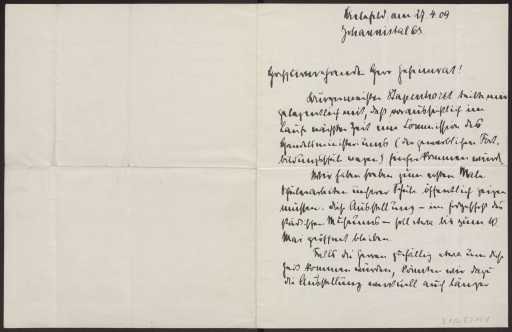 Bielefeld, am 27.4.09
Johannistal 63
Herr Geheimrat!
Bürgermeister Stapenhorst teilte mir
gelegentlich mit, daß voraussichtlich im
Laufe nächster Zeit eine Commission des
Handelsministeriums (der gewerblichen Fort-
bildungsschule wegen) hierher kommen würde
Wir haben soeben zum ersten Male
Schülerarbeiten unserer Schule öffentlich zeigen
müssen. Diese Ausstellung – im Erdgeschoß des
städtischen Museums – soll etwa bis zum 10
Mai geöffnet bleiben.
Falls die Herren zufällig etwa um diese
Zeit kommen würden, könnten wir dazu
die Ausstellung eventuell auch länger